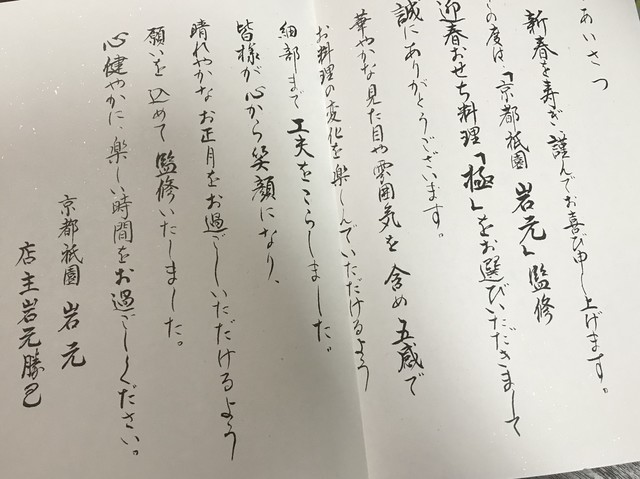 ごあいさつ
新春を寿ぎ謹んでお喜び申し上げます。
この度は、「京都祇園 岩元」監修
迎春おせち料理「極」をお選びいただきまして
誠にありがとうございます。
華やかな見た目や雰囲気を含め五感で
お料理の変化を楽しんでいただけるよう
細部まで工夫をこらしました。
皆様が心から笑顔になり、
晴れやかなお正月をお過ごしいただけるよう
願いを込めて監修いたしました。
心健やかに、楽しい時間をお過ごしください。
京都祇園 岩元
店主岩元勝己